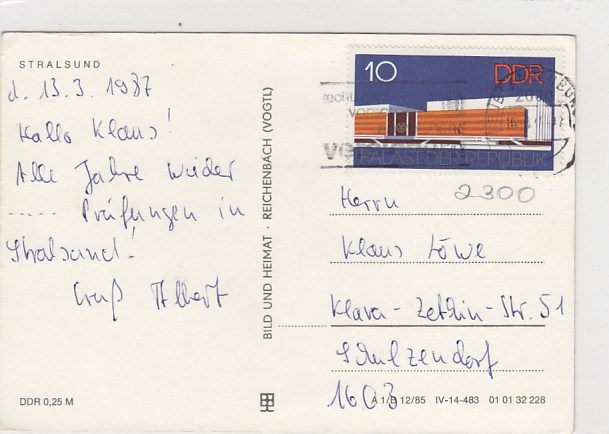 STRALSUND
d. 13.3.1987
Hallo Klaus!
Alle Jahre wieder
..... Prüfungen in
Stralsund!
Gruß Albert
DDR 0,25 M
BILD UND HEIMAT · REICHENBACH (VOGTL)
10 DDR
PALAST DER REPUBLIK
2300
Herrn
Klaus Löwe
Klara-Zetkin-Str. 51
Schulzendorf
1603
A 1/B 12/85 IV-14-483 01 01 32 228